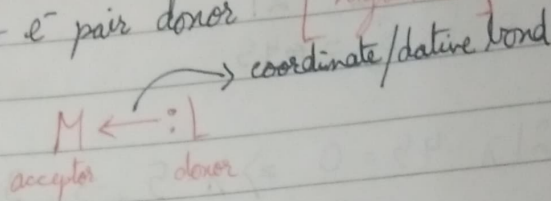 - e⁻ pair donor
coordinate/dative bond
M ← :L
acceptor donor